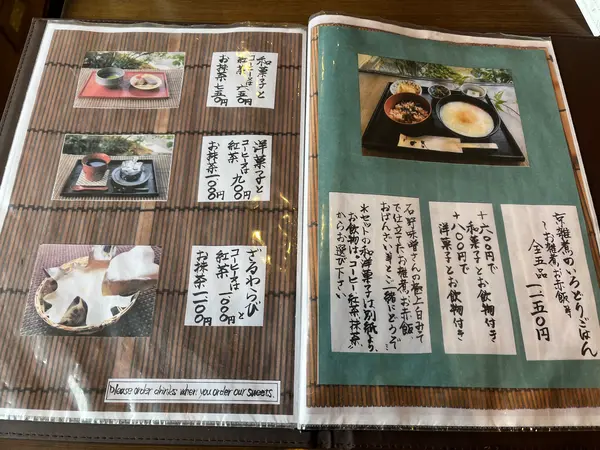 和菓子と
コーヒー又は
紅茶 六五〇
お抹茶 七五〇円
洋菓子と
コーヒー又は
紅茶 九〇〇
お抹茶 一一〇〇円
ざるわらび
コーヒー又は と
紅茶 一〇〇〇
お抹茶 一一〇〇円
please order drinks when you order our sweets.
京雑煮のいろどりごはん
〜お雑煮、お赤飯等
全五品 一二五〇円
+六〇〇円で
和菓子とお飲物付き
+八〇〇円で
洋菓子とお飲物付き
石野味噌さんの極上白みそ
で仕立てたお雑煮。お赤飯
おばんざい等と一緒にどうぞ
*セットの和洋菓子は別紙より、
お飲物は、コーヒー、紅茶、抹茶
からお選び下さい